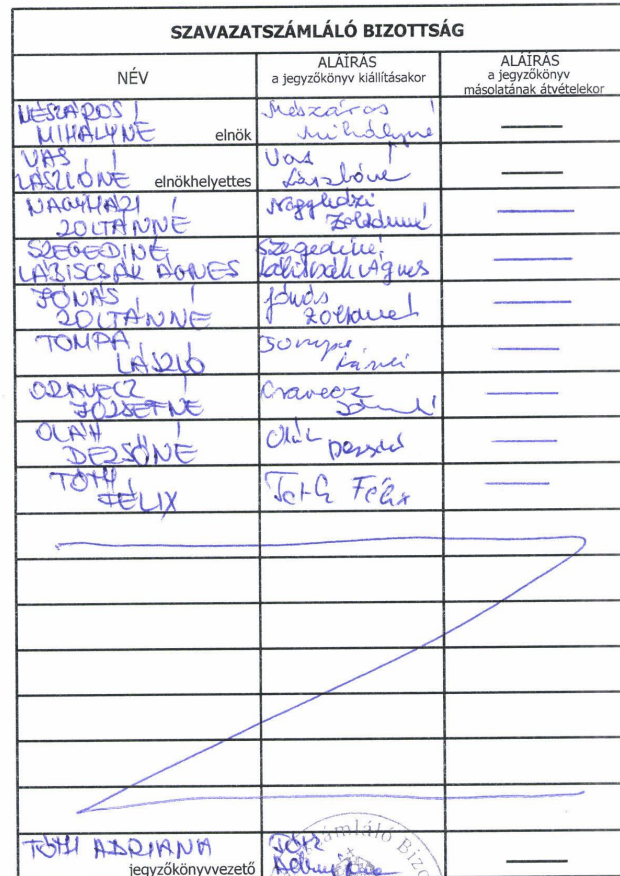 SZAVAZATSZÁMLÁLÓ BIZOTTSÁG
NÉV
ALÁÍRÁS
a jegyzőkönyv kiállításakor
ALÁÍRÁS
a jegyzőkönyv
másolatának átvételekor
MÉSZÁROS
MIHÁLYNÉ elnök
Mészáros
Mihályné
VAS
LÁSZLÓNÉ elnökhelyettes
Vas
Lászlóné
NAGYHÁZI
ZOLTÁNNÉ
Nagyházi
Zoltánné
SZEGEDINÉ
LABISCSÁK ÁGNES
Szegediné
Labiscsák Ágnes
JÓNÁS
ZOLTÁNNÉ
Jónás
Zoltánné
TOMPA
LÁSZLÓ
Tompa
ORAVECZ
JÓZSEFNÉ
Oravecz
OLÁH
DEZSŐNÉ
Oláh Dezsőné
TÓTH
FÉLIX
Tóth Félix
TÓTH ADRIANA
jegyzőkönyvvezető
Tóth
számláló Bizo